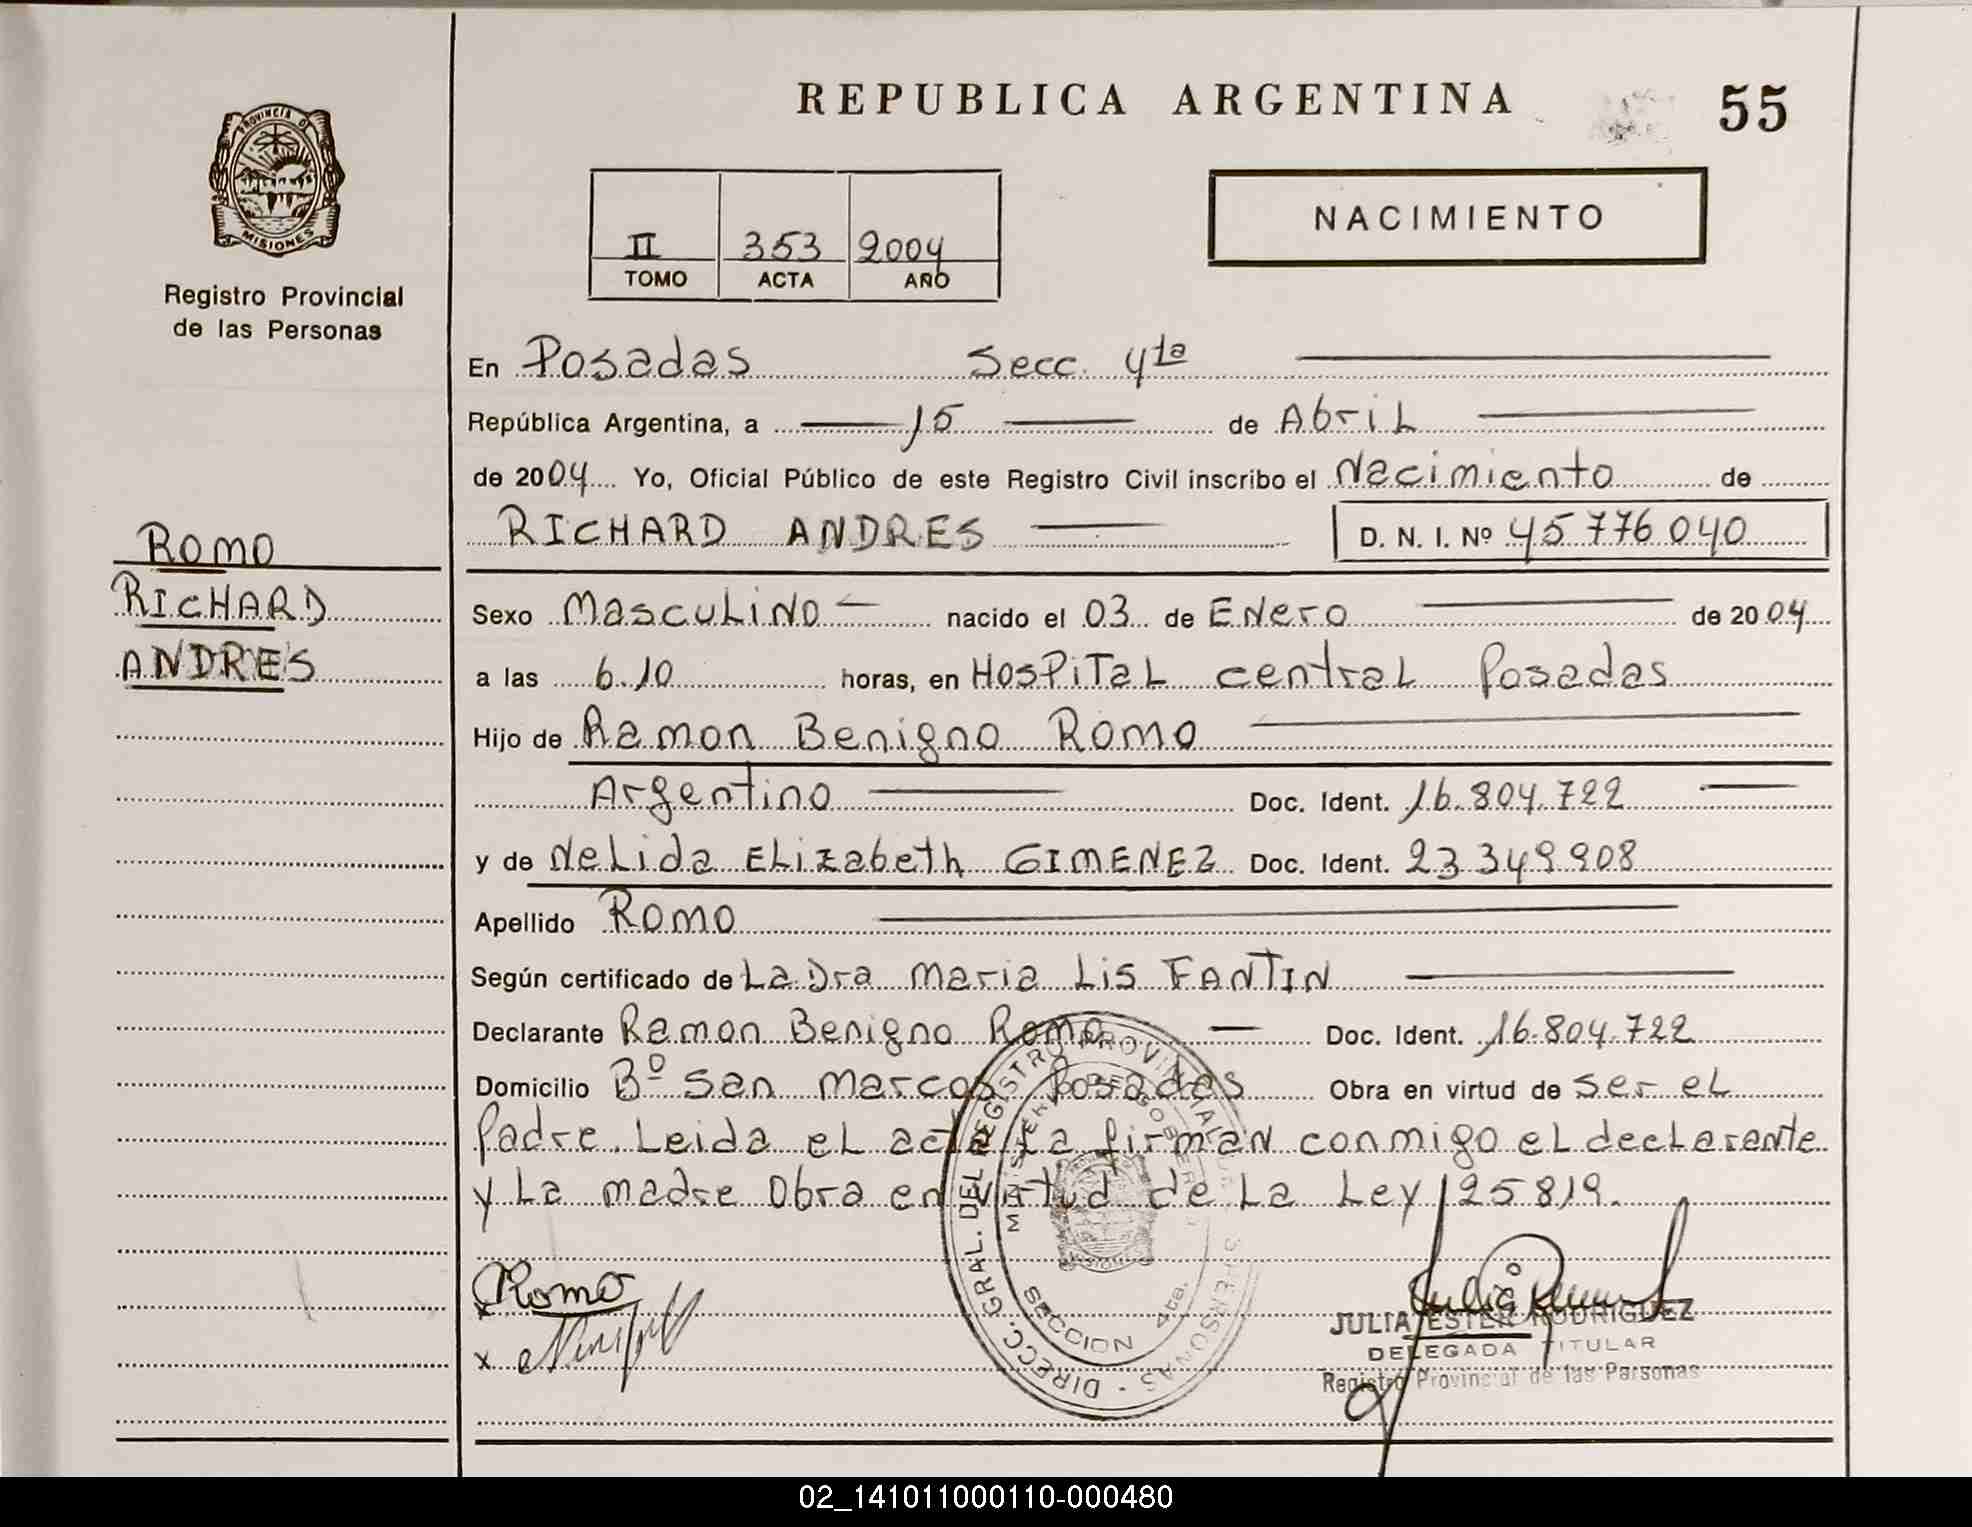 REPUBLICA ARGENTINA 55
PROVINCIA DE
MISIONES
Registro Provincial
de las Personas
II 353 2004
TOMO ACTA AÑO
NACIMIENTO
En Posadas Secc. 4ta
República Argentina, a 15 de Abril
de 2004 Yo, Oficial Público de este Registro Civil inscribo el Nacimiento de
RICHARD ANDRES D. N. I. Nº 45.776.040
ROMO
RICHARD
ANDRES
Sexo Masculino nacido el 03 de Enero de 2004
a las 6.10 horas, en Hospital central Posadas
Hijo de Ramon Benigno Romo
Argentino Doc. Ident. 16.804.722
y de Nelida Elizabeth GIMENEZ Doc. Ident. 23.349.908
Apellido Romo
Según certificado de La Dra Maria Lis FANTIN
Declarante Ramon Benigno Romo Doc. Ident. 16.804.722
Domicilio Bº San Marcos Posadas Obra en virtud de ser el
Padre. Leida el acta La firman conmigo el declarante
y La madre Obra en virtud de La Ley 25819.
DIRECC. GRAL. DEL REGISTRO PROVINCIAL DE LAS PERSONAS
MINISTERIO DE GOBIERNO
SECCION 4ta.
MISIONES
x Romo
x
JULIA ESTER RODRIGUEZ
DELEGADA TITULAR
Registro Provincial de las Personas
02_141011000110-000480